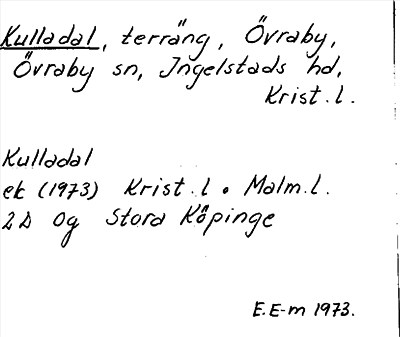 Kulladal, terräng, Övraby,
Övraby sn, Ingelstads hd,
Krist. l.
Kulladal
ek (1973) Krist. l. Malm. l.
2D 0g Stora Köpinge
E.E-m 1973.